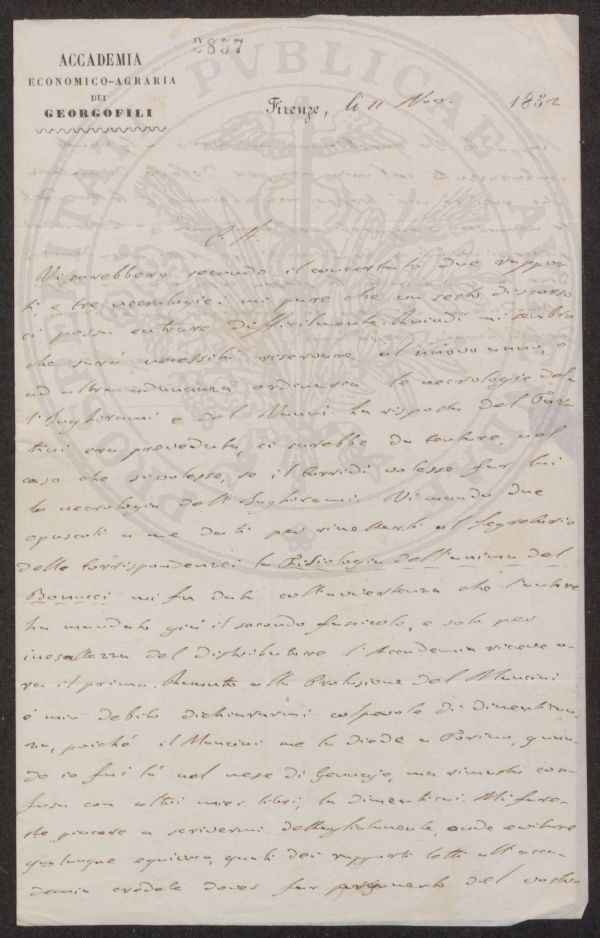 2857
ACCADEMIA
ECONOMICO-AGRARIA
DEI
GEORGOFILI
Firenze, li 11 Nov. 1852
C. A.
Vi sarebbero secondo il concertato due rappor-
ti, e tre necrologie; mi pare che un sesto discorso
ci possa entrare difficilmente. Quindi mi sembra
che sarà necessità riservare al nuovo anno, e
ad altra adunanza ordinaria le necrologie del-
l'Inghirami e del Nanni. La risposta del Tar-
tini era preveduta, ci sarebbe da tentare, nel
caso che si volesse, se il Corridi volesse far lui
la necrologia dell'Inghirami. Vi mando due
opuscoli a me dati per rimetterli al Segretario
delle corrispondenze; la Fisiologia dell'anima del
Bonucci mi fu data coll'avvertenza che l'autore
ha mandato già il secondo fascicolo, e solo per
inesattezza del distributore l'Accademia riceve o-
ra il primo. Quanto alla Prolusione del Mancini
è mio debito dichiararmi colpevole di dimentican-
za, poiché il Mancini me la diede a Torino, quan-
do io fui là nel mese di Gennajo, ma rimasta con-
fusa con altri miei libri, la dimenticai. Mi fare-
ste piacere a scrivermi dettagliatamente, onde evitare
qualunque equivoco, quali dei rapporti letti all'acca-
demia credete dover far argomento del vostro
PVBLICAE
PROSPERITATI